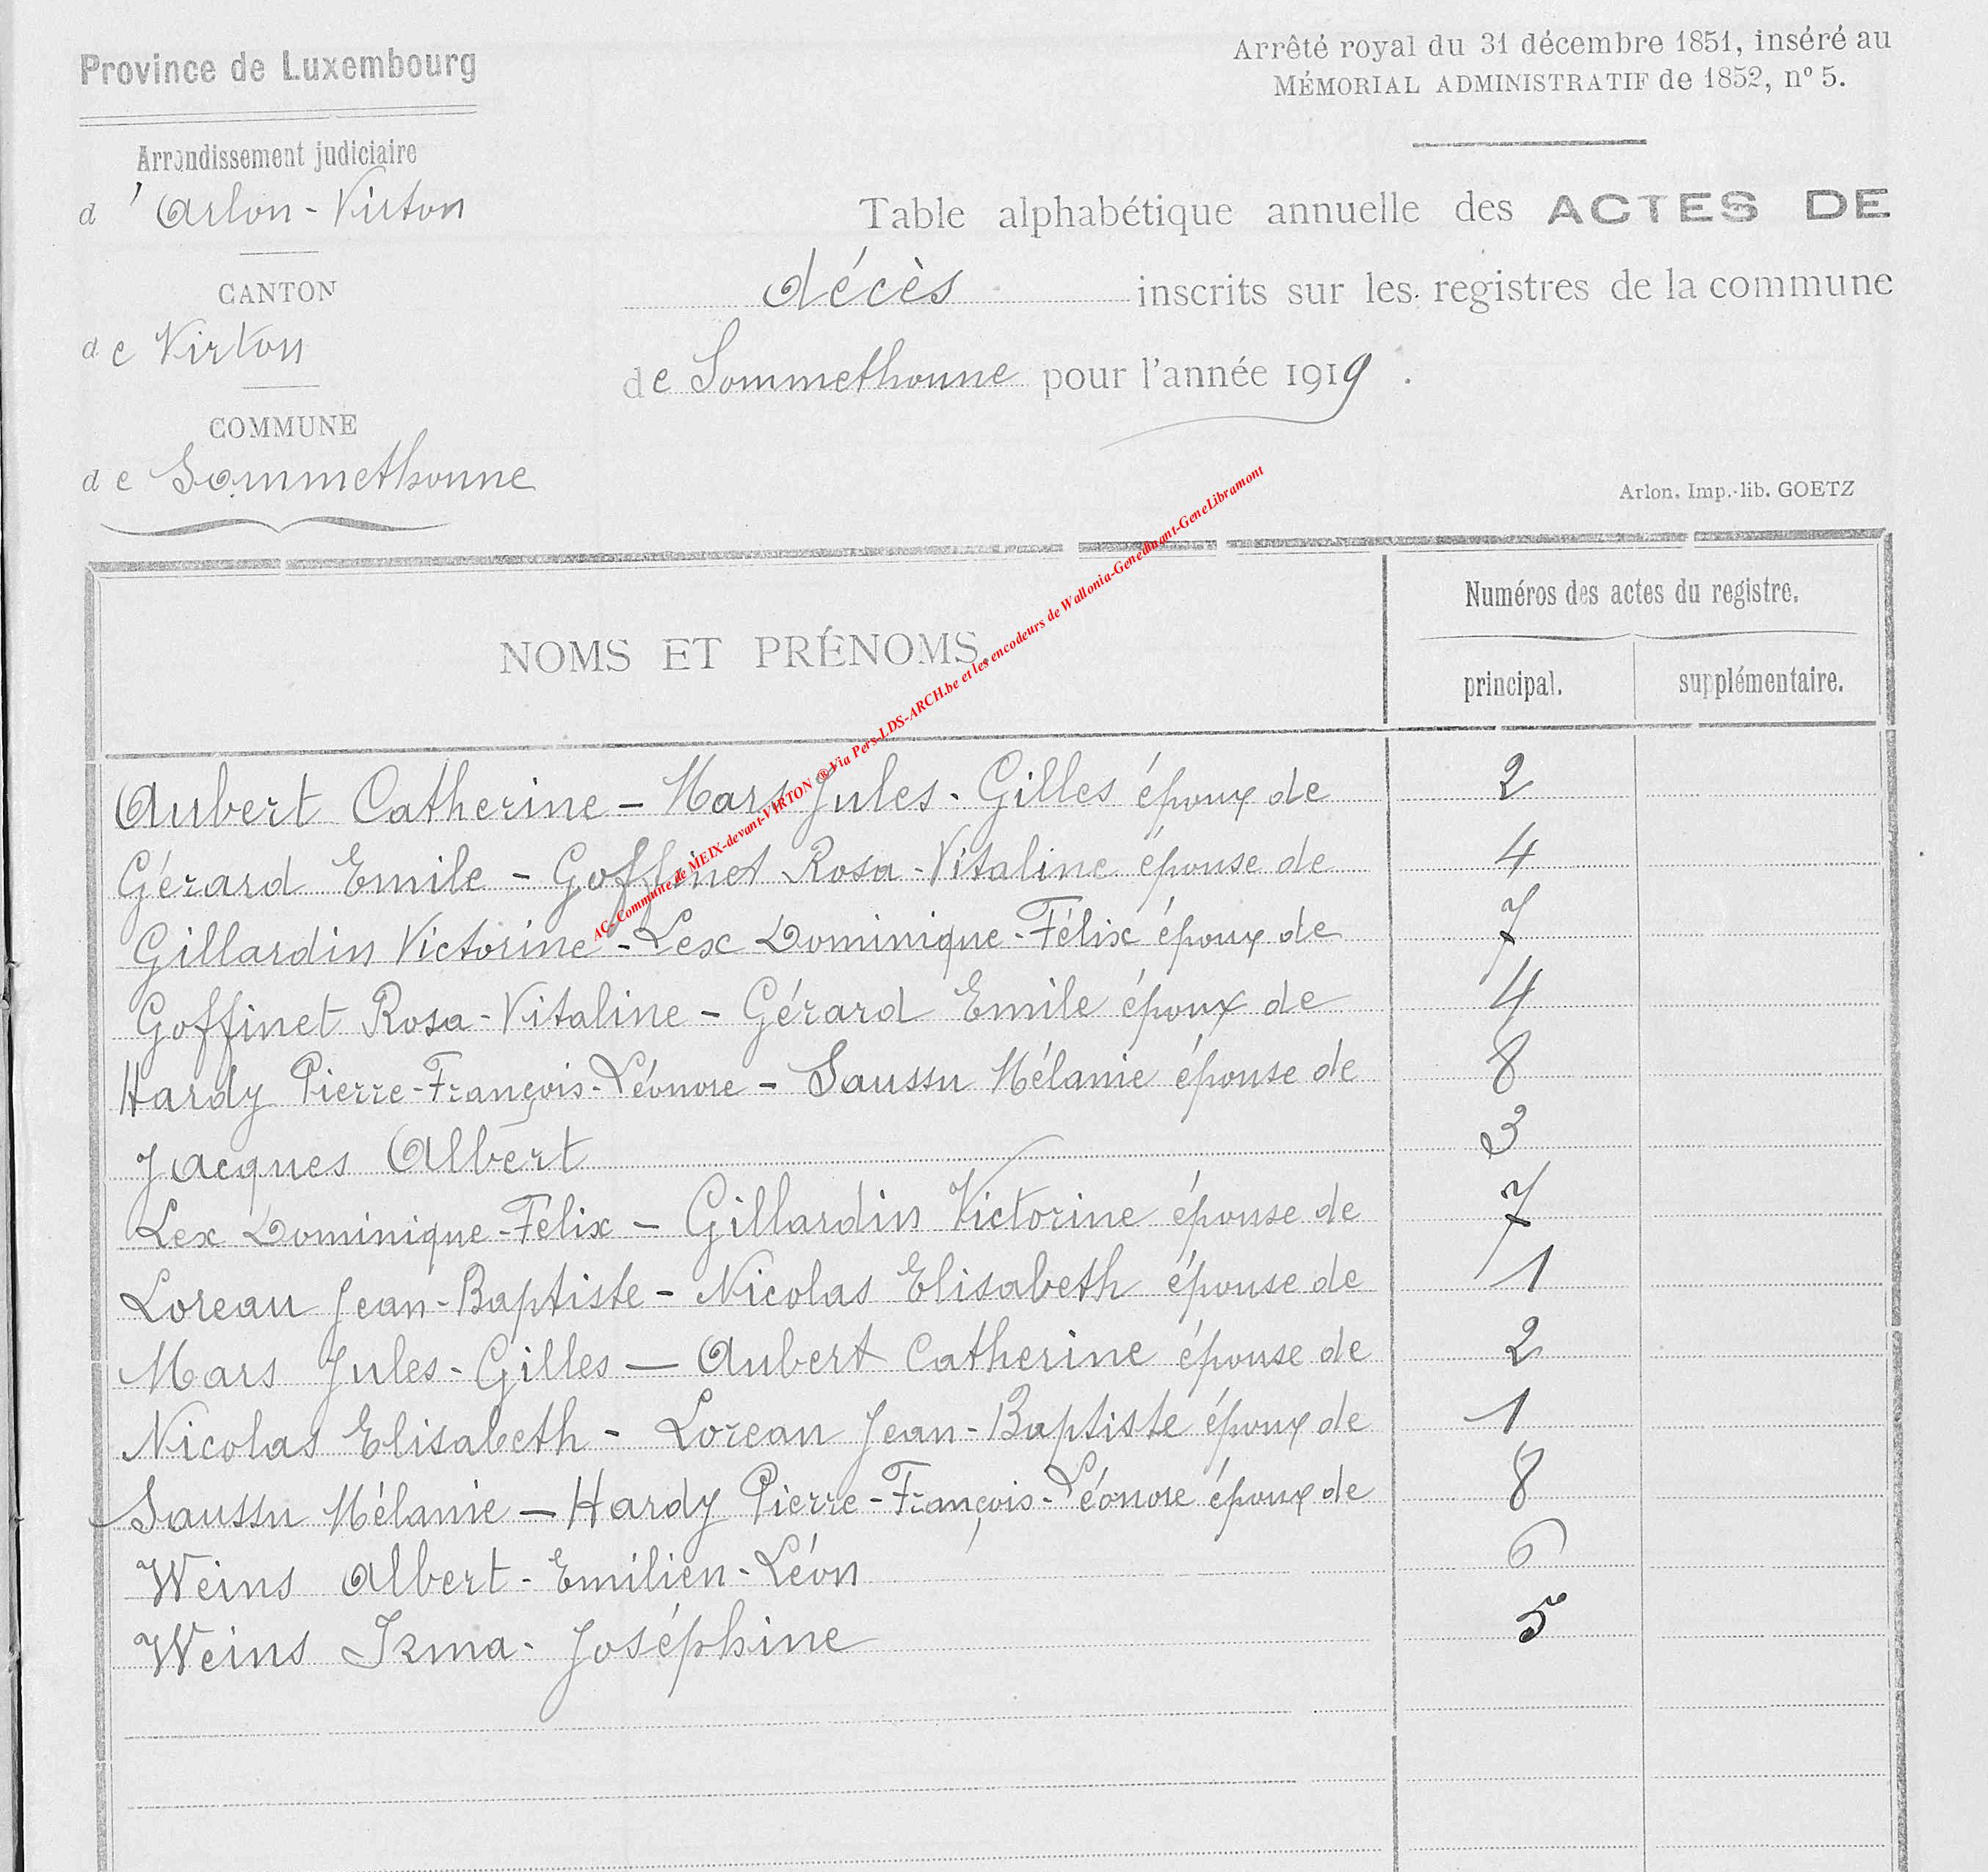 Province de Luxembourg
Arrondissement judiciaire
d'Arlon-Virton
CANTON
de Virton
COMMUNE
de Sommethonne
Arrêté royal du 31 décembre 1851, inséré au
MÉMORIAL ADMINISTRATIF de 1852, nº 5.
Table alphabétique annuelle des ACTES DE
décès inscrits sur les registres de la commune
de Sommethonne pour l'année 1919.
Arlon. Imp.-lib. GOETZ
NOMS ET PRÉNOMS.
Numéros des actes du registre.
principal. supplémentaire.
AC- Commune de MEIX-devant-VIRTON ® Via Pers-LDS-ARCH.be et les encodeurs de Wallonia-Genedinant-GeneLibramont
Aubert Catherine – Mars Jules-Gilles époux de 2
Gérard Emile – Goffinet Rosa-Vitaline épouse de 4
Gillardin Victorine – Lex Dominique-Félix époux de 7
Goffinet Rosa-Vitaline – Gérard Emile époux de 4
Hardy Pierre-François-Léonore – Saussu Mélanie épouse de 8
Jacques Albert 3
Lex Dominique-Félix – Gillardin Victorine épouse de 7
Loreau Jean-Baptiste – Nicolas Elisabeth épouse de 1
Mars Jules-Gilles – Aubert Catherine épouse de 2
Nicolas Elisabeth – Loreau Jean-Baptiste époux de 1
Saussu Mélanie – Hardy Pierre-François-Léonore époux de 8
Weins Albert-Emilien-Léon 6
Weins Irma-Joséphine 5